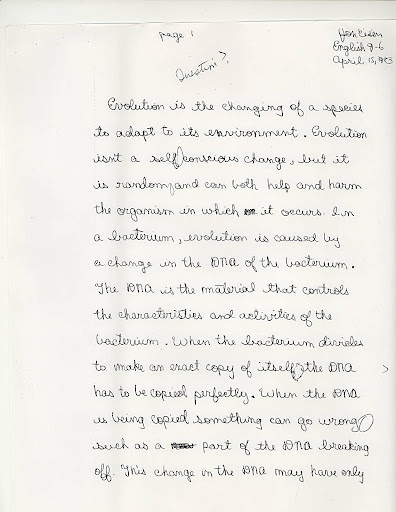 page 1
English 9-6
April 15, 1983
Question?
Evolution is the changing of a species
to adapt to its environment. Evolution
isnt a self conscious change, but it
is random and can both help and harm
the organism in which it occurs. In
a bacterium, evolution is caused by
a change in the DNA of the bacterium.
The DNA is the material that controls
the characteristics and activities of the
bacterium. When the bacterium divides
to make an exact copy of itself, the DNA
has to be copied perfectly. When the DNA
is being copied something can go wrong
such as a part of the DNA breaking
off. This change in the DNA may have only